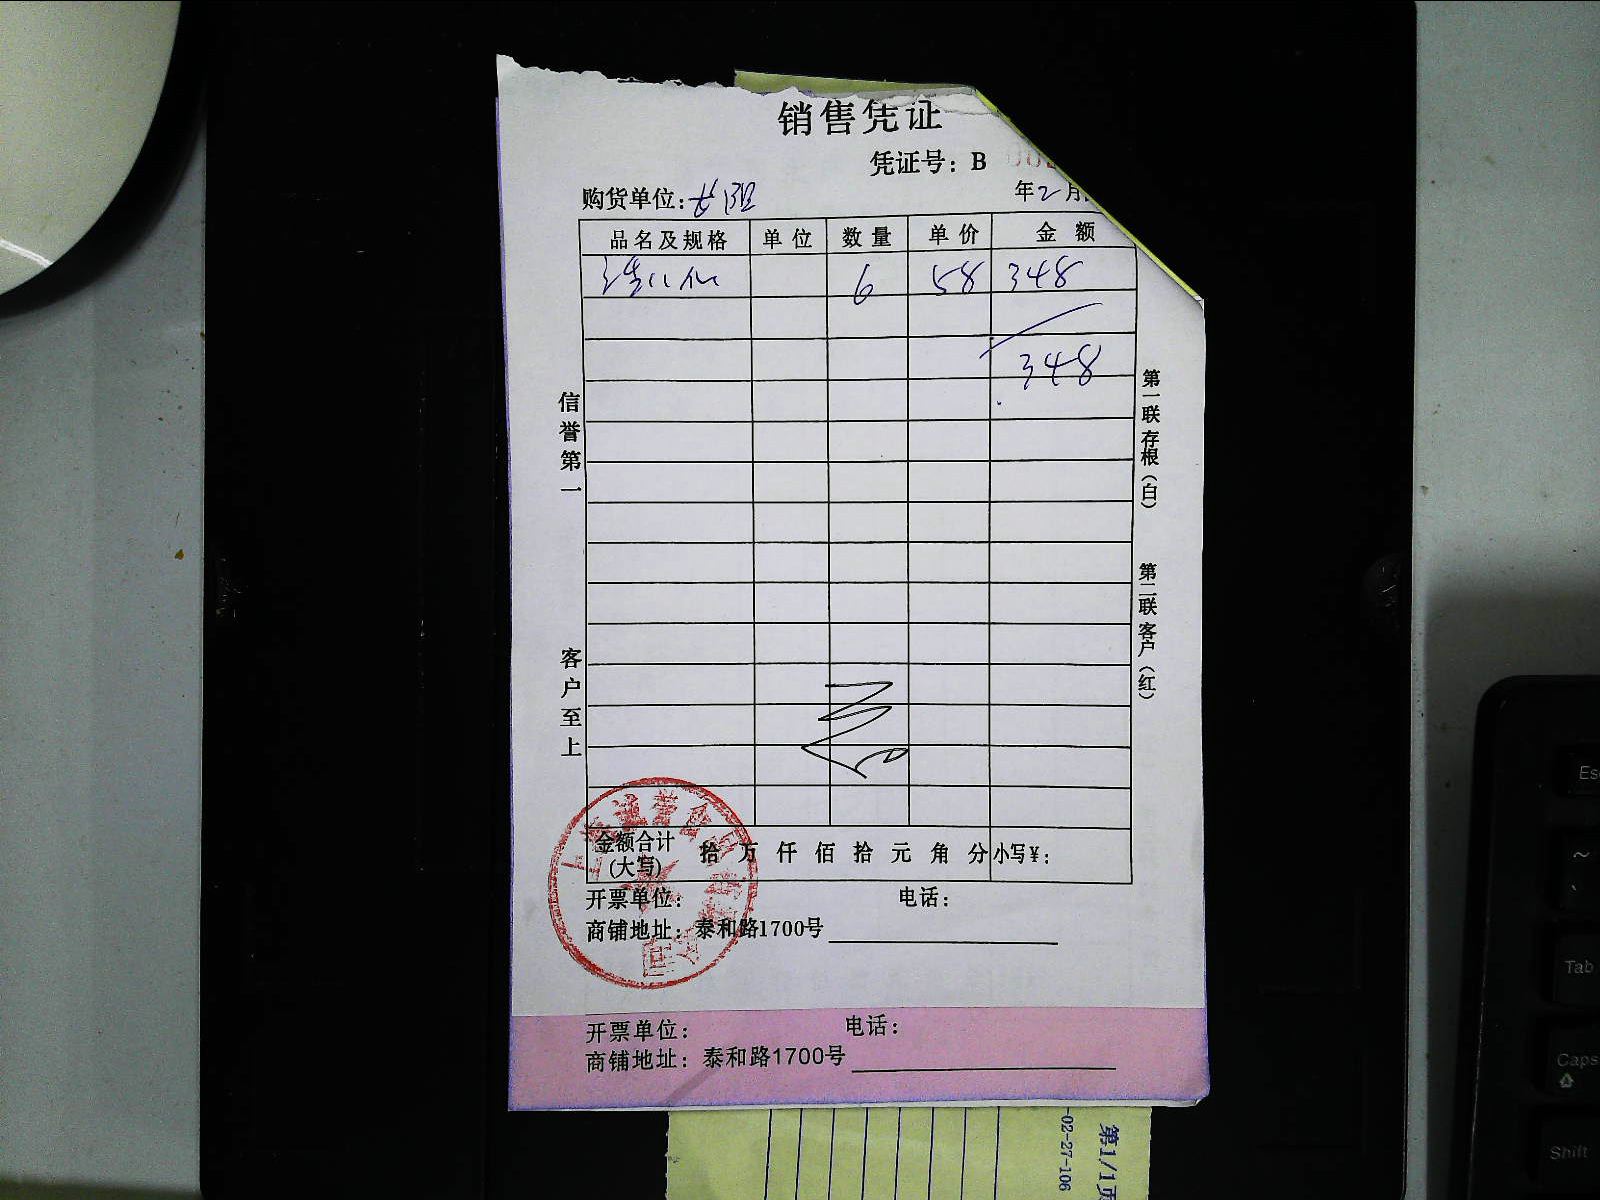 销售凭证
凭证号：B 002
购货单位：
年2月
品名及规格 单位 数量 单价 金额
6 58 348
348
信誉第一
客户至上
第一联存根（白）
第二联客户（红）
金额合计（大写） 拾 万 仟 佰 拾 元 角 分 小写¥：
开票单位： 电话：
商铺地址：泰和路1700号
开票单位： 电话：
商铺地址：泰和路1700号
-02-27-106
第1/1页
Esc
~
Tab
Caps
Shift